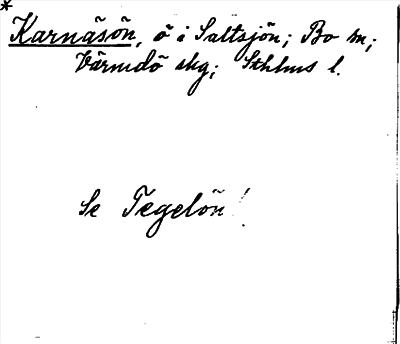 * Karnäsön, ö i Saltsjön; Bo sn;
Värmdö skg; Sthlms l.
Se Tegelön!